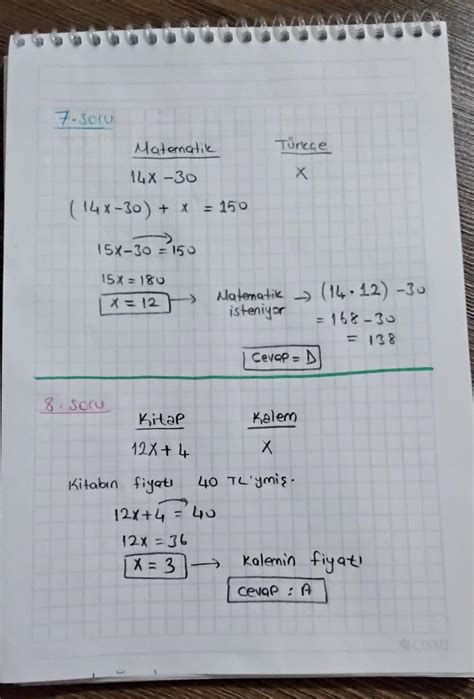 7. soru
Matematik Türkçe
14x - 30 x
(14x-30) + x = 150
15x-30 = 150
15x = 180
x = 12 → Matematik isteniyor → (14 . 12) - 30
= 168 - 30
= 138
Cevap = D
8. soru
Kitap Kalem
12x + 4 x
Kitabın fiyatı 40 TL'ymiş.
12x+4 = 40
12x = 36
x = 3 → Kalemin fiyatı
Cevap : A